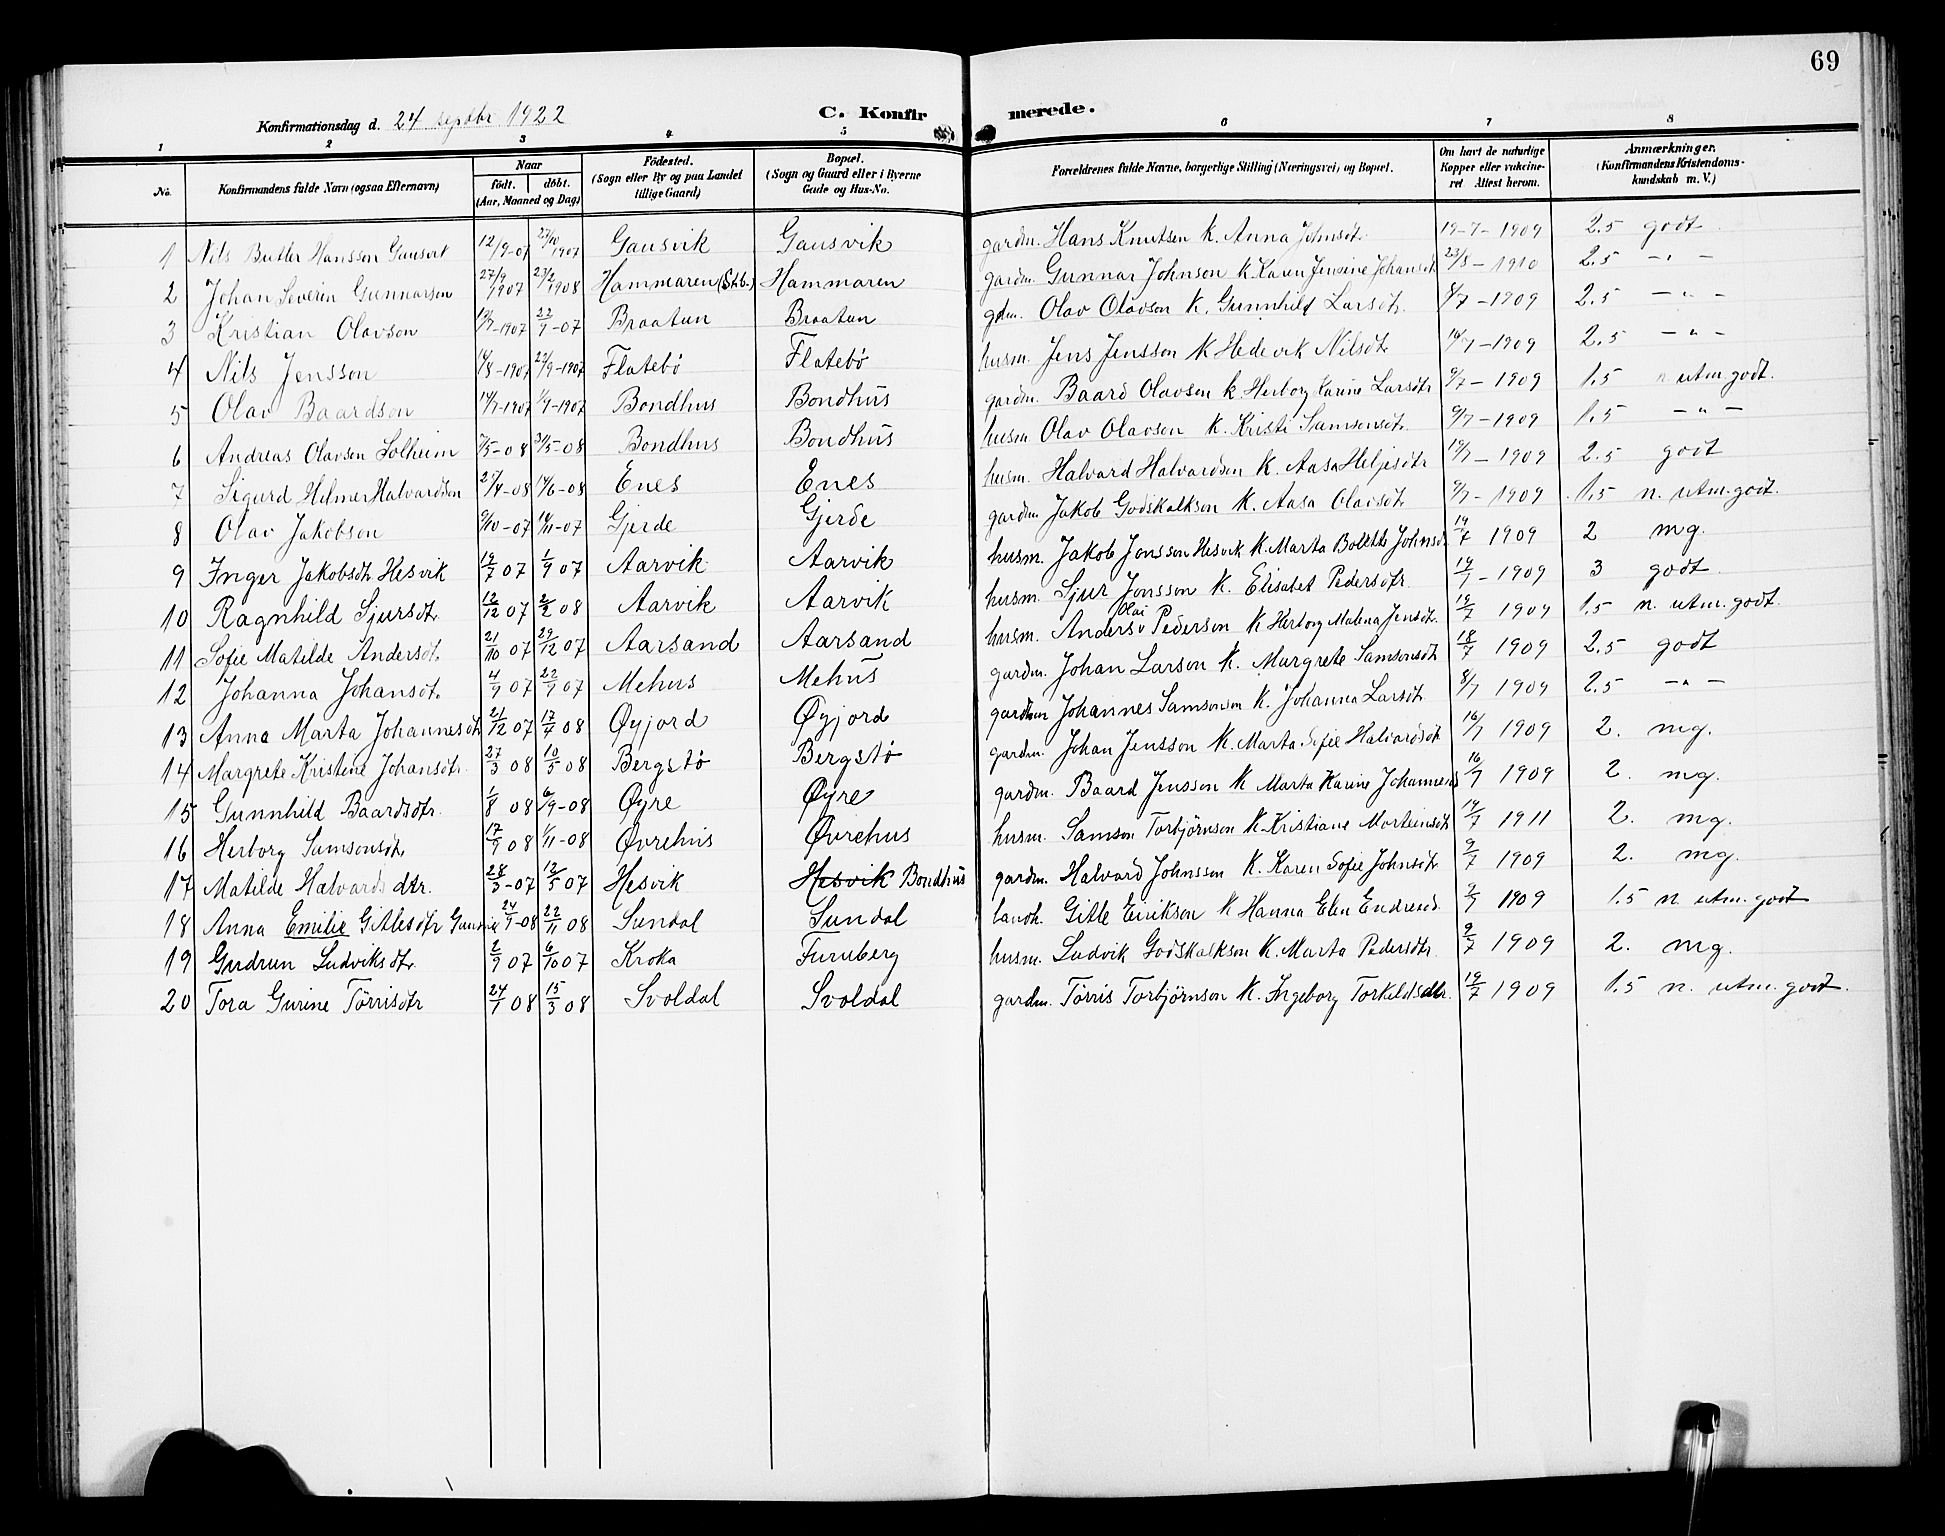 69
Konfirmationsdag d. 24 septbr 1922 C. Konfirmerede.
1 2 3 4 5 6 7 8
No. Konfirmandens fulde Navn (ogsaa Efternavn) Naar født. døbt. (Aar, Maaned og Dag) Fødested. (Sogn eller By og paa Landet tillige Gaard) Bopæl. (Sogn og Gaard eller i Byerne Gade og Hus-No. Forældrenes fulde Navne, borgerlige Stilling (Næringsvei) og Bopæl. Om havt de naturlige Kopper eller vakcineret Attest herom. Anmærkninger. (Konfirmandens Kristendomskundskab m. V.)
1 Nils Butler Hansson Gausvik 12/9-07 27/10 1907 Gausvik Gausvik gardm. Hans Knutsen k. Anna Johnsdt. 19-7-1909 2.5 godt
2 Johan Severin Gunnarson 27/9 1907 23/2 1908 Hammaren (Stb.) Hammaren gardm. Gunnar Johnson k. Karen Jensine Johansdt 23/8-1910 2.5 - " -
3 Kristian Olavson 19/7-1907 22/9-07 Braatun Braatun gdm. Olav Olavson K. Gunnhild Larsdt. 8/7-1909 2.5 - " -
4 Nils Jensson 14/8-1907 22/9-1907 Flatebø Flatebø husm. Jens Jensson K Hedevik Nilsdt. 19/7-1909 2.5 - " -
5 Olav Baardson 14/7-1907 1/9-1907 Bondhus Bondhus gardm. Baard Olavson k Herborg Karine Larsdtr 9/7-1909 1.5 n. utm. godt.
6 Andreas Olavson Solheim 7/5-08 31/5-08 Bondhus Bondhus husm Olav Olavson K. Kristi Samsonsdt. 9/7-1909 1.5 - " -
7 Sigurd Helmer Halvardson 25/4-08 14/6-08 Enes Enes husm. Halvard Halvardson K. Aasa Heljesdtr 19/7-1909 2.5 godt
8 Olav Jakobson 9/10-07 10/11-07 Gjerde Gjerde gardm Jakob Godskalkson K. Aasa Olavsdt. 9/7-1909 1.5 n. utm. godt.
9 Inger Jakobsdt. Hesvik 19/7 07 1/9 07 Aarvik Aarvik husm. Jakob Jonsson Hesvik K. Marta Bolette Johnsdt 19/7 1909 2 mg.
10 Ragnhild Sjursdt. 12/12 07 2/2 08 Aarvik Aarvik husm. Sjur Jonsson K. Elisabet Pedersdtr. 19/7-1909 3 godt
11 Sofie Matilde Andersdt. 21/10 07 29/12 07 Aarsand Aarsand husm. Anders Olai Pederson K Herborg Malena Jensdt. 19/7 1909 1.5 n. utm. godt.
12 Johanna Johansdt. 4/9 07 22/9 07 Mehus Mehus gardm. Johan Larson K. Margrete Samsonsdt 18/7 1909 2.5 godt
13 Anna Marta Johannesdt. 21/12 07 17/4 08 Øyjord Øyjord gardm Johannes Samsonson K. Johanna Larsdt. 8/7 1909 2.5 - " -
14 Margrete Kristine Johansdt. 27/3 08 10/5 08 Bergstø Bergstø gardm. Johan Jensson K. Marta Sofie Halvardsdt 16/7 1909 2. mg.
15 Gunnhild Baardsdtr. 1/8 08 6/9-08 Øyre Øyre gardm. Baard Jensson K Marta Karine Johannesd 16/7 1909 2. mg.
16 Herborg Samsonsdt. 17/9 08 1/11-08 Øvrehus Øvrehus husm. Samson Torbjørnson K. Kristiane Morteinsdt 19/7 1911 2. mg.
17 Matilde Halvardsdtr. 28/3-07 12/5 07 Hesvik Hesvik Bondhus gardm. Halvard Johnsson K. Karen Sofie Johnsdt. 9/7 1909 2. mg.
18 Anna Emilie Gitlesdtr 24/9-08 22/11 08 Sundal Sundal landh. Gitle Eirikson K Hanna Elen Endresd. 9/7 1909 1.5 n utm. godt
19 Gudrun Ludviksdt. 2/9 07 6/10 07 Kroka Furuberg husm. Ludvik Godskalkson K. Marta Pedersdtr. 9/7 1909 2. mg.
20 Tora Gurine Tørrisdtr 24/1 08 15/3 08 Svoldal Svoldal gardm. Tørris Torbjørnson K. Ingeborg Torkelsdtr. 19/7 1909 1.5 n. utm. godt.